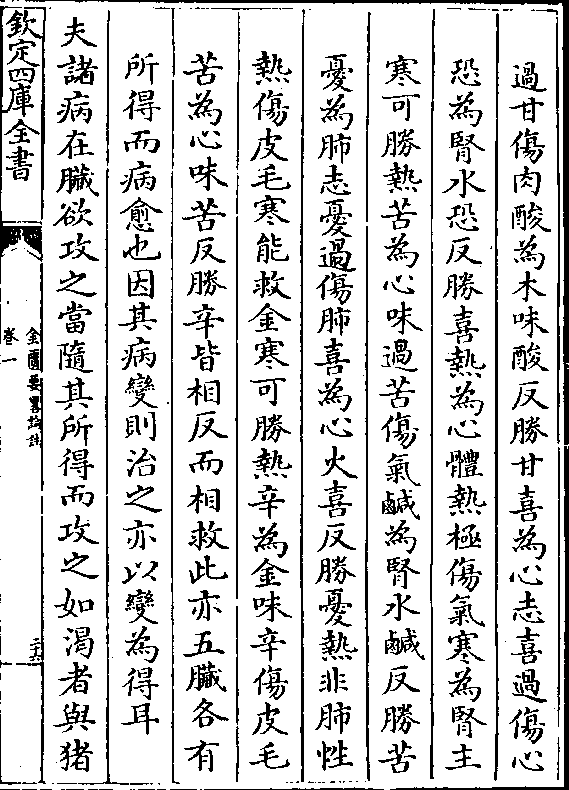 過甘傷肉酸為木味酸反勝甘喜為心志喜過傷心
恐為腎水恐反勝喜熱為心體熱極傷氣寒為腎主
寒可勝熱苦為心味過苦傷氣鹹為腎水鹹反勝苦
憂為肺志憂過傷肺喜為心火喜反勝憂熱非肺性
熱傷皮毛寒能救金寒可勝熱辛為金味辛傷皮毛
苦為心味苦反勝辛皆相反而相救此亦五臟各有
所得而病愈也因其病變則治之亦以變為得耳
夫諸病在臟欲攻之當隨其所得而攻之如渴者與猪
欽定四庫全書
金匱要畧論註
卷一
二十六